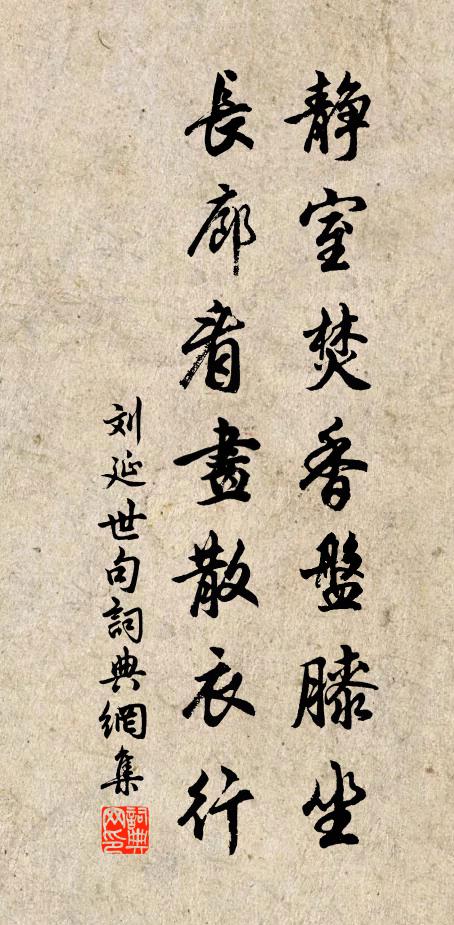 静室焚香盤膝坐
長廊看畫散衣行
刘延世句詞典網集
詞典网印